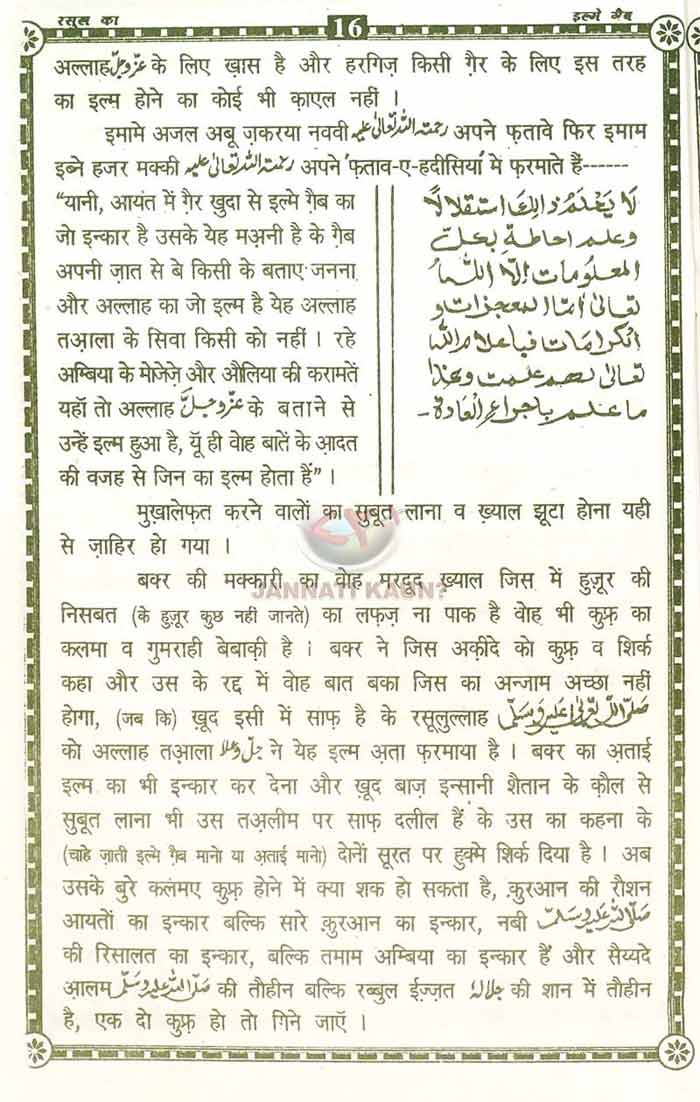 रसूल का
16
इल्मे गैब
अल्लाह عزوجل के लिए ख़ास है और हरगिज़ किसी ग़ैर के लिए इस तरह
का इल्म होने का कोई भी क़ाएल नहीं ।
इमामे अजल अबू ज़करया नववी رحمتہ اللہ تعالیٰ علیہ अपने फ़तावे फिर इमाम
इब्ने हजर मक्की رحمتہ اللہ تعالیٰ علیہ अपने फ़ताव-ए-हदीसिया मे फ़रमाते है------
“यानी, आयंत में ग़ैर खुदा से इल्मे ग़ैब का
जो इन्कार है उसके येह मअ़नी है के ग़ैब
अपनी ज़ात से बे किसी के बताए जनना
और अल्लाह का जो इल्म है येह अल्लाह
तआला के सिवा किसी को नहीं । रहे
अम्बिया के मोजेज़े और औलिया की करामतें
यहाँ तो अल्लाह عزوجل के बताने से
उन्हें इल्म हुआ है, यूँ ही वोह बातें के आदत
की वजह से जिन का इल्म होता हैं” ।
لا يعلم ذالك استقلالا
وعلم احاطة بكل
المعلومات الا الله
تعالى اما المعجزات و
الكرامات فباعلام الله
تعالى لهم علمت وكذا
ما علم باجراء العادة-
मुख़ालेफ़त करने वालों का सुबूत लाना व ख़्याल झूटा होना यही
से ज़ाहिर हो गया ।
JANNATI KAUN?
बक्र की मक्कारी का वोह मरदूद ख़्याल जिस में हुज़ूर की
निसबत (के हुज़ूर कुछ नही जानते) का लफ़ज़ ना पाक है वोह भी कुफ़्र का
कलमा व गुमराही बेबाक़ी है । बक्र ने जिस अक़ीदे को कुफ़्र व शिर्क
कहा और उस के रद्द में वोह बात बका जिस का अन्जाम अच्छा नहीं
होगा, (जब कि) ख़ूद इसी में साफ़ है के रसूलुल्लाह صلی اللہ تعالیٰ علیہ وسلم
को अल्लाह तआ़ला جل وعلا ने येह इल्म अ़ता फ़रमाया है । बक्र का अ़ताई
इल्म का भी इन्कार कर देना और ख़ूद बाज़ इन्सानी शैतान के क़ौल से
सुबूत लाना भी उस तअ़लीम पर साफ़ दलील हैं के उस का कहना के
(चाहे ज़ाती इल्मे ग़ैब मानो या अ़ताई मानो) दोनों सूरत पर हुक्मे शिर्क दिया है । अब
उसके बुरे कलंमए कुफ़्र होने में क्या शक हो सकता है, क़ुरआन की रौशन
आयतों का इन्कार बल्कि सारे क़ुरआन का इन्कार, नबी صلی اللہ علیہ وسلم
की रिसालत का इन्कार, बल्कि तमाम अम्बिया का इन्कार हैं और सैय्यदे
आलम صلی اللہ علیہ وسلم की तौहीन बल्कि रब्बुल ईज़्ज़त جلالہ की शान में तौहीन
है, एक दो कुफ़्र हो तो गिने जाएँ ।